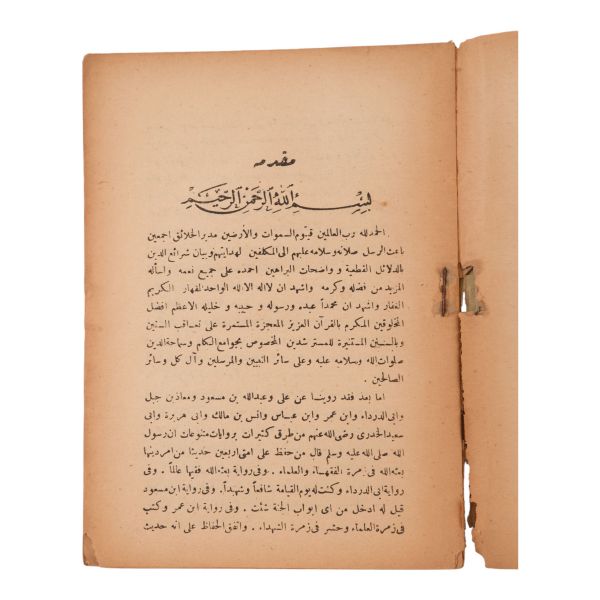 مقدمه
بسم الله الرحمن الرحيم
الحمد لله رب العالمين قيوم السموات والأرضين مدبر الخلائق اجمعين
باعث الرسل صلاته وسلامه عليهم الى المكلفين لهدايتهم وبيان شرائع الدين
بالدلائل القطعية و واضحات البراهين احمده على جميع نعمه واسأله
المزيد من فضله وكرمه واشهد ان لااله الاالله الواحد القهار الكريم
الغفار واشهد ان محمداً عبده ورسوله و حبيبه و خليله الاعظم افضل
المخلوقين المكرم بالقرآن العزيز المعجزة المستمرة على تعاقب السنين
وبالسنن المستنيرة للمسترشدين المخصوص بجوامع الكلم وسماحة الدين
صلوات الله وسلامه عليه وعلى سائر النبيين والمرسلين وآل كل وسائر
الصالحين .
اما بعد فقد روينا عن على وعبدالله بن مسعود ومعاذ بن جبل
وابى الدرداء وابن عمر وابن عباس وانس بن مالك وابى هريرة وابى
سعيد الخدرى رضى الله عنهم من طرق كثيرات بروايات متنوعات ان رسول
الله صلى الله عليه وسلم قال من حفظ على امتى اربعين حديثا من امر دينها
بعثه الله فى زمرة الفقهاء والعلماء . وفى رواية بعثه الله فقيها عالماً . وفى
رواية ابى الدرداء وكنت له يوم القيامة شافعاً وشهيداً. وفى رواية ابن مسعود
قيل له ادخل من اى ابواب الجنة شئت . وفى رواية ابن عمر وكتب
فى زمرة العلماء وحشر فى زمرة الشهداء. واتفق الحفاظ على انه حديث